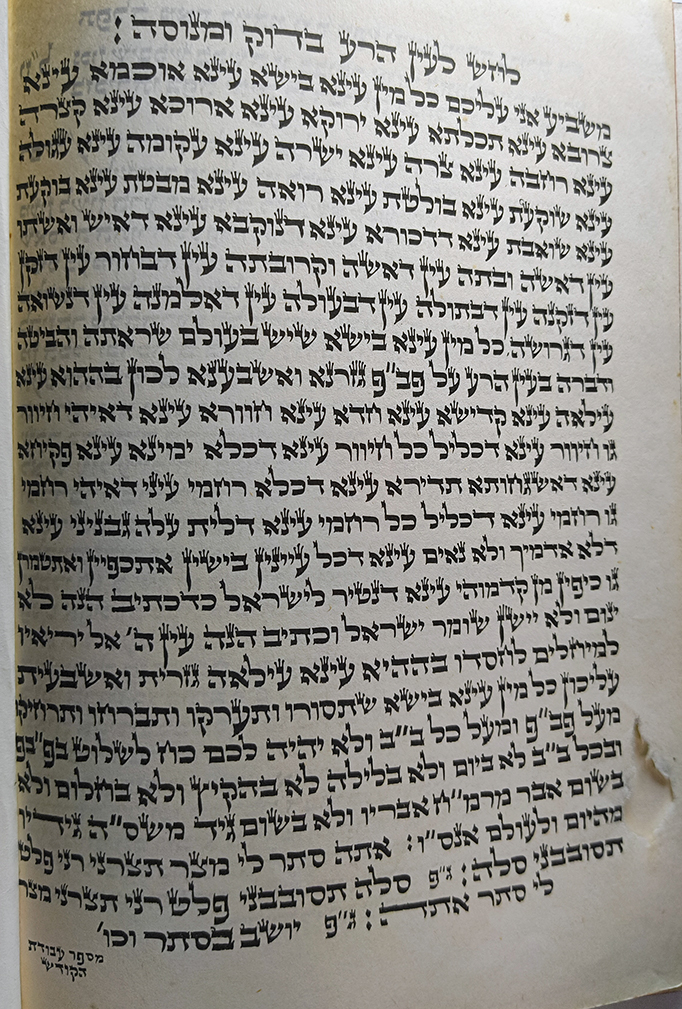 לוחש לעין הרע בדוק ומנוסה :
משביע אני עליכם כל מין עינא בישא עינא אוכמא עינא
צרובא עינא תכלתא עינא ירוקא עינא ארוכא עינא קצרה
עינא רחבה עינא צרה עינא ישרה עינא עקומה עינא עגולה
עינא שוקעת עינא בולטת עינא רואה עינא מבטת עינא בוקעת
עינא שואבת עינא דדכורא עינא דנוקבא עינא דאיש ואשתו
עין דאשה ובתה עין דאשה וקרובתה עין דבחור עין דזקן
עין דזקנה עין דבתולה עין דבעולה עין דאלמנה עין דנשואה
עין דגרושה. כל מין עינא בישא שיש בעולם שראתה והביטה
ודברה בעין הרע על פב״פ גזרנא ואשבענא לכון בההוא עינא
עילאה עינא קדישא עינא חדא עינא חיוורא עינא דאיהי חיוור
גו חיוור עינא דכליל כל חיוור עינא דכלא ימינא עינא פקיחא
עינא דאשגחותא תדירא עינא דכלא רחמי עיני דאיהי רחמי
גו רחמי עינא דכליל כל רחמי עינא דלית עלה גבניני עינא
דלא אדמיך ולא נאים עינא דכל עיינין בישין אתכפיין ואתטמרן
גו כיפין מן קדמוהי עינא דנטיר לישראל כדכתיב הנה לא
ינום ולא יישן שומר ישראל וכתיב הנה עין ה׳ אל יריאיו
למיחלים לחסדו בההיא עינא עילאה גזרית ואשבעית
עליכון כל מין עינא בישא שתסורו ותערקו ותברחו ותרחיקו
מעל פב״פ ומעל כל ב״ב ולא יהיה לכם כח לשלוט בפ״בפ
ובכל ב״ב לא ביום ולא בלילה לא בהקיץ ולא בחלום ולא
בשום אבר מרמ״ח אבריו ולא בשום גיד משס״ה גידיו
מהיום ולעולם אנס״ו : אתה סתר לי מצר תצרני רני פלט
תסובבני סלה : ג״פ סלה תסובבני פלט רני תצרני מצר
לי סתר אתה : ג״פ יושב בסתר וכו׳
מספר עבודת
הקודש